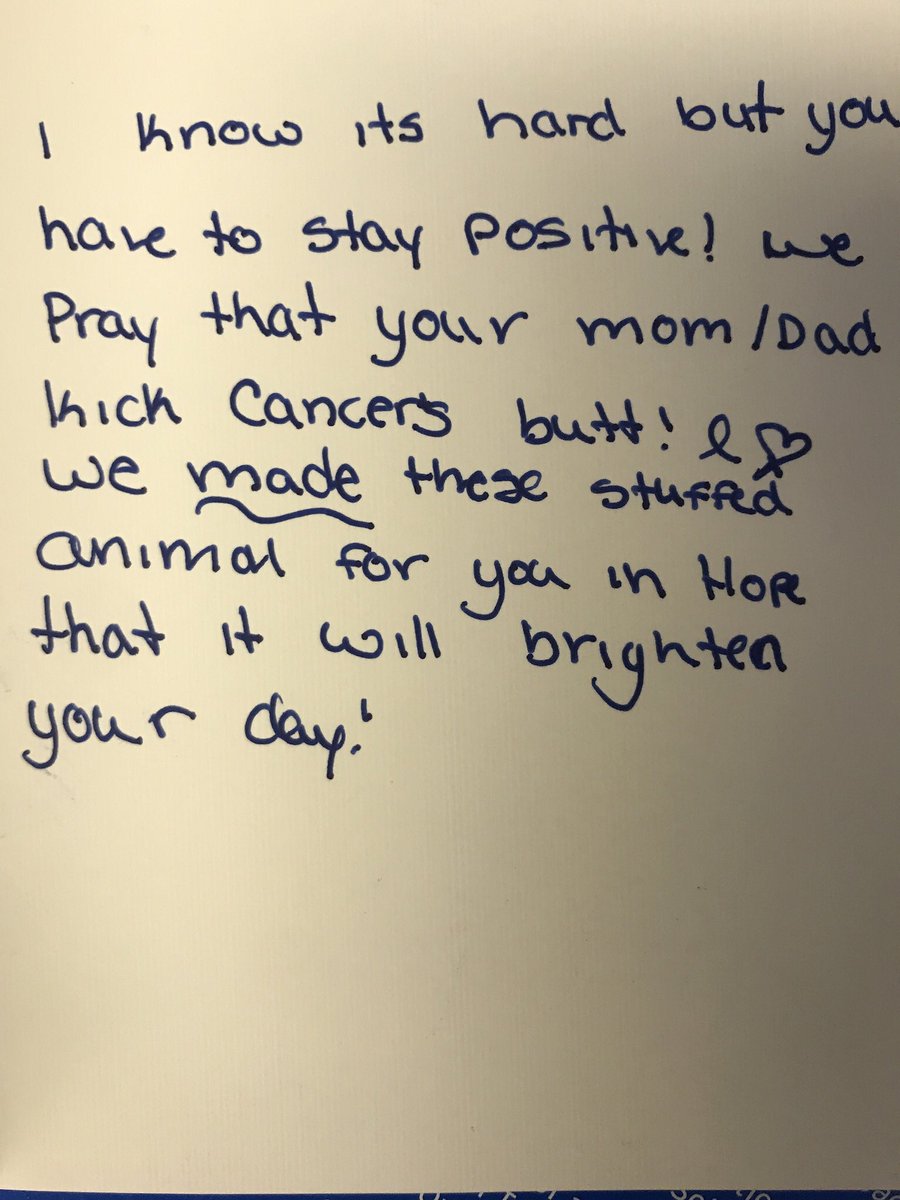 I know its hard but you
have to stay positive! we
Pray that your mom/Dad
kick Cancers butt!
we made these stuffed
animal for you in Hope
that it will brighten
your day!